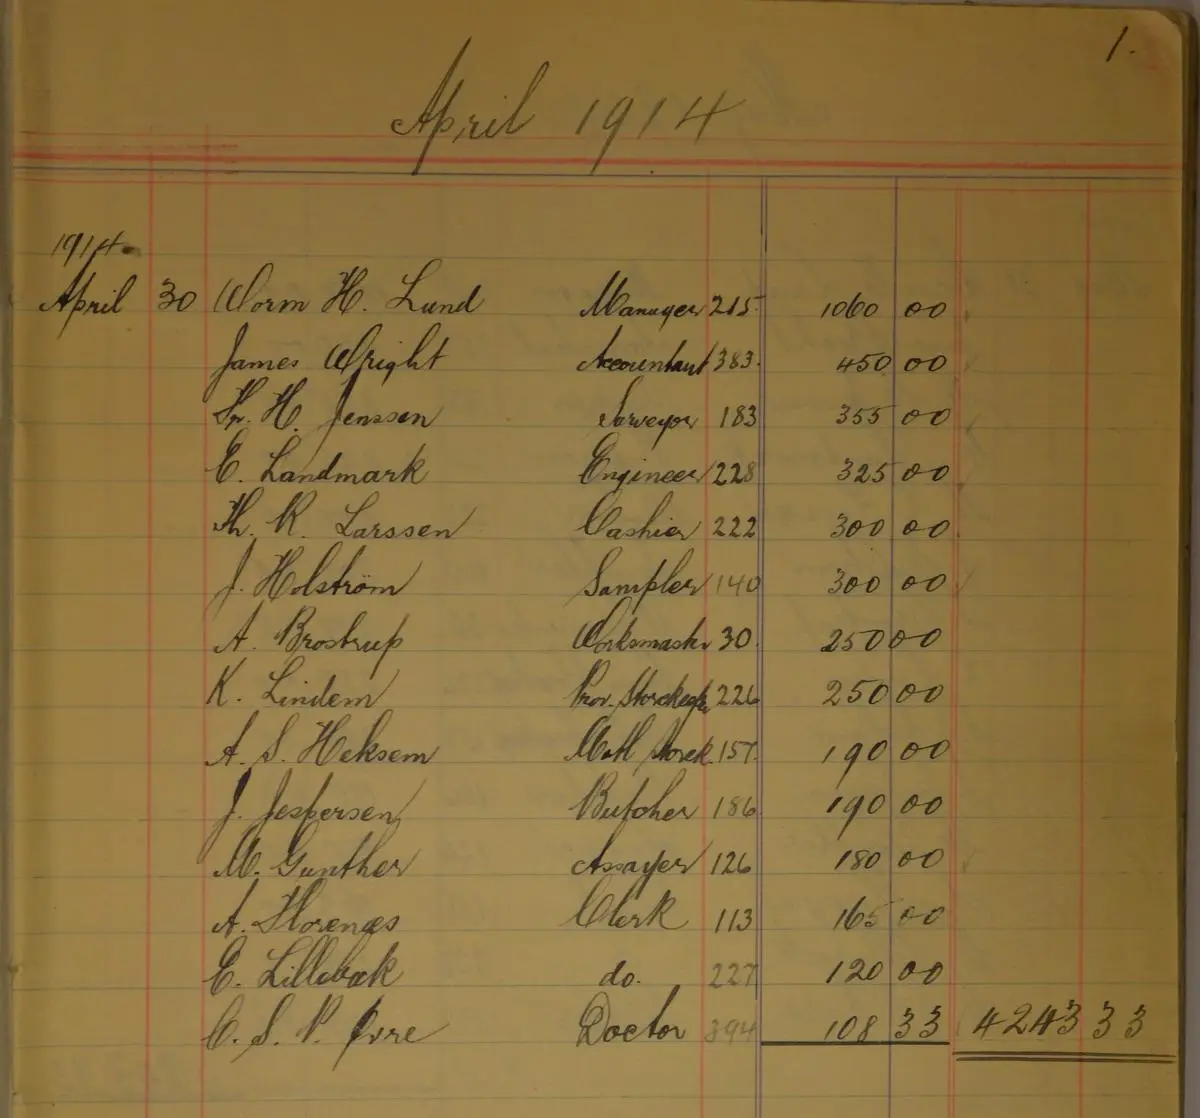 1.
April 1914
1914
April 30 Worm H. Lund Manager 215 1060 00
James Wright Accountant 383 450 00
H. Jenssen Surveyor 183 355 00
E. Landmark Engineer 228 325 00
Th. R. Larssen Cashier 222 300 00
J. Holström Sampler 140 300 00
A. Brostrup Worksmastr 30 250 00
K. Lindem Prov. 226 250 00
A. S. Heksem Matl Storek. 157 190 00
J. Jespersen Butcher 186 190 00
M. Gunther Assayer 126 180 00
A. Storenæs Clerk 113 165 00
E. Lillebæk do. 227 120 00
C. S. P. Øvre Doctor 394 108 33 4243 33